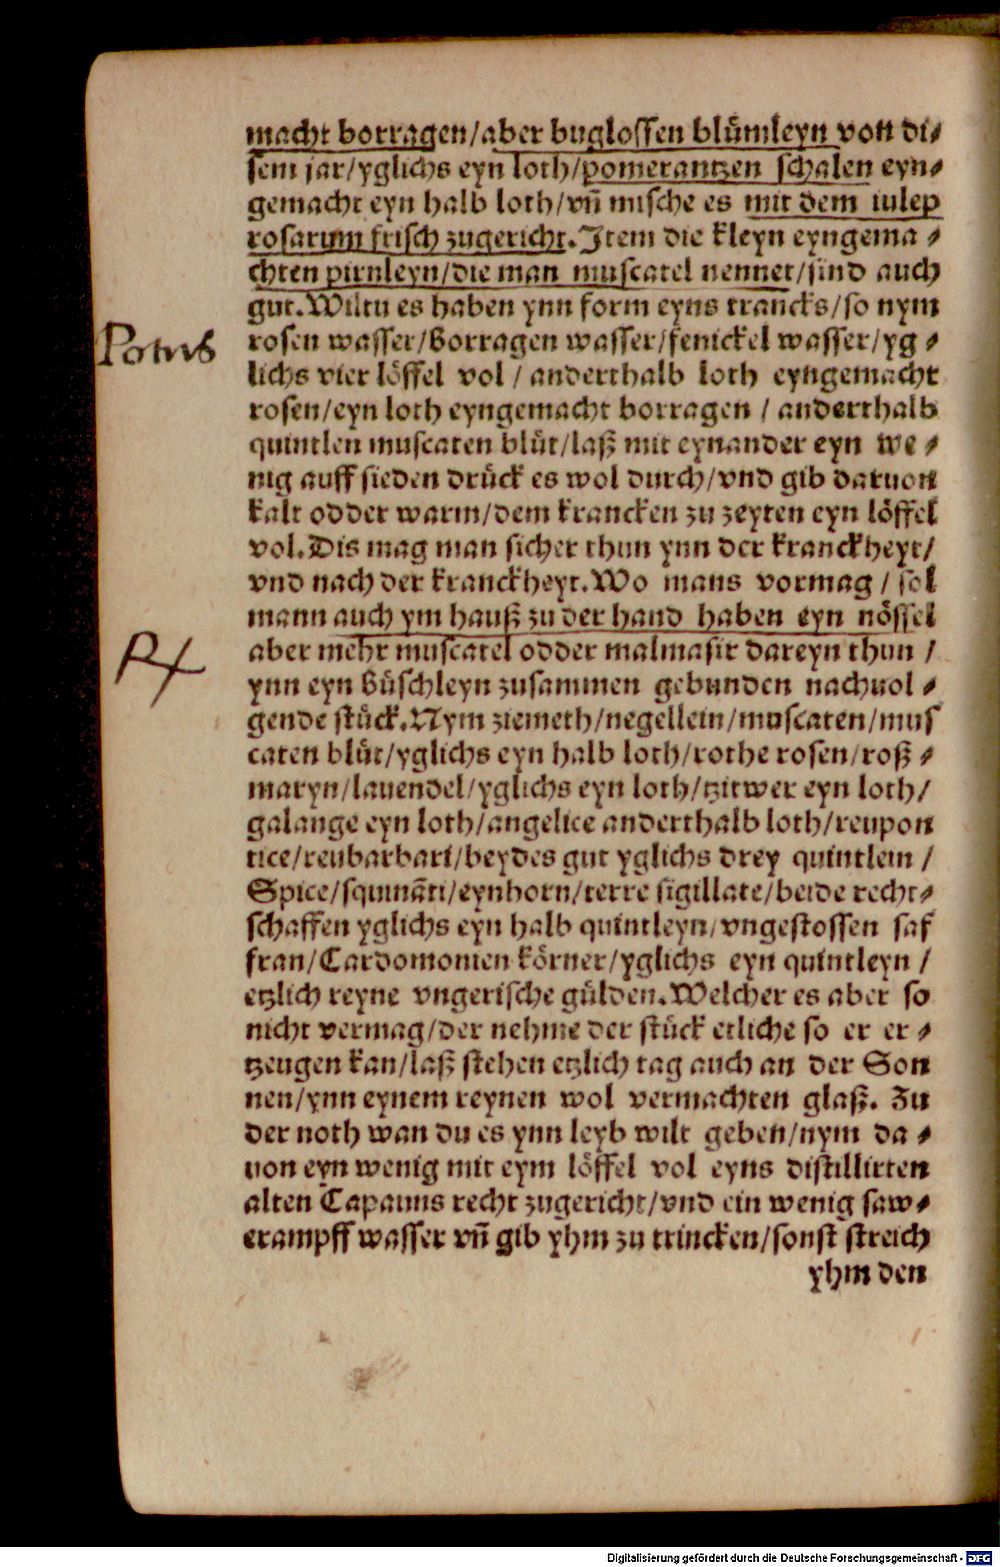 macht borragen/aber buglossen blůmleyn von di⸗
sem jar/yglichs eyn loth/pomerantzen schalen eyn⸗
gemacht eyn halb loth/vñ mische es mit dem iulep
rosarum frisch zugericht. Item die kleyn eyngema⸗
chten pirnleyn/die man muscatel nennet/sind auch
gut. Wiltu es haben ynn form eyns trancks/so nym
Potus
rosen wasser/Borragen wasser/fenickel wasser/yg⸗
lichs vier lôffel vol/anderthalb loth eyngemacht
rosen/eyn loth eyngemacht borragen/anderthalb
quintlen muscaten blůt/laß mit eynander eyn we⸗
nig auff sieden drůck es wol durch/vnd gib daruon
kalt odder warm/dem krancken zu zeyten eyn lôffel
vol. Dis mag man sicher thun ynn der kranckheyt/
vnd nach der kranckheyt. Wo mans vormag/sol
mann auch ym hauß zu der hand haben eyn nôssel
℞
aber mehr muscatel odder malmasir dareyn thun/
ynn eyn Bůschleyn zusammen gebunden nachuol⸗
gende stůck. Nym ziemeth/negellein/muscaten/mus
caten blůt/yglichs eyn halb loth/rothe rosen/roß⸗
maryn/lauendel/yglichs eyn loth/tzitwer eyn loth/
galange eyn loth/angelice anderthalb loth/reupon
tice/reubarbari/beydes gut yglichs drey quintlein/
Spice/squinãti/eynhorn/terre sigillate/beide recht⸗
schaffen yglichs eyn halb quintleyn/vngestossen saf
fran/Cardomomen kôrner/yglichs eyn quintleyn/
etzlich reyne vngerische gůlden. Welcher es aber so
nicht vermag/der nehme der stůck etliche so er er⸗
tzeugen kan/laß stehen etzlich tag auch an der Son
nen/ynn eynem reynen wol vermachten glaß. Zu
der noth wan du es ynn leyb wilt geben/nym da⸗
uon eyn wenig mit eym lôffel vol eyns distillirten
alten Capauns recht zugericht/vnd ein wenig saw⸗
erampff wasser vñ gib yhm zu trincken/sonst streich
yhm den
Digitalisierung gefördert durch die Deutsche Forschungsgemeinschaft - DFG